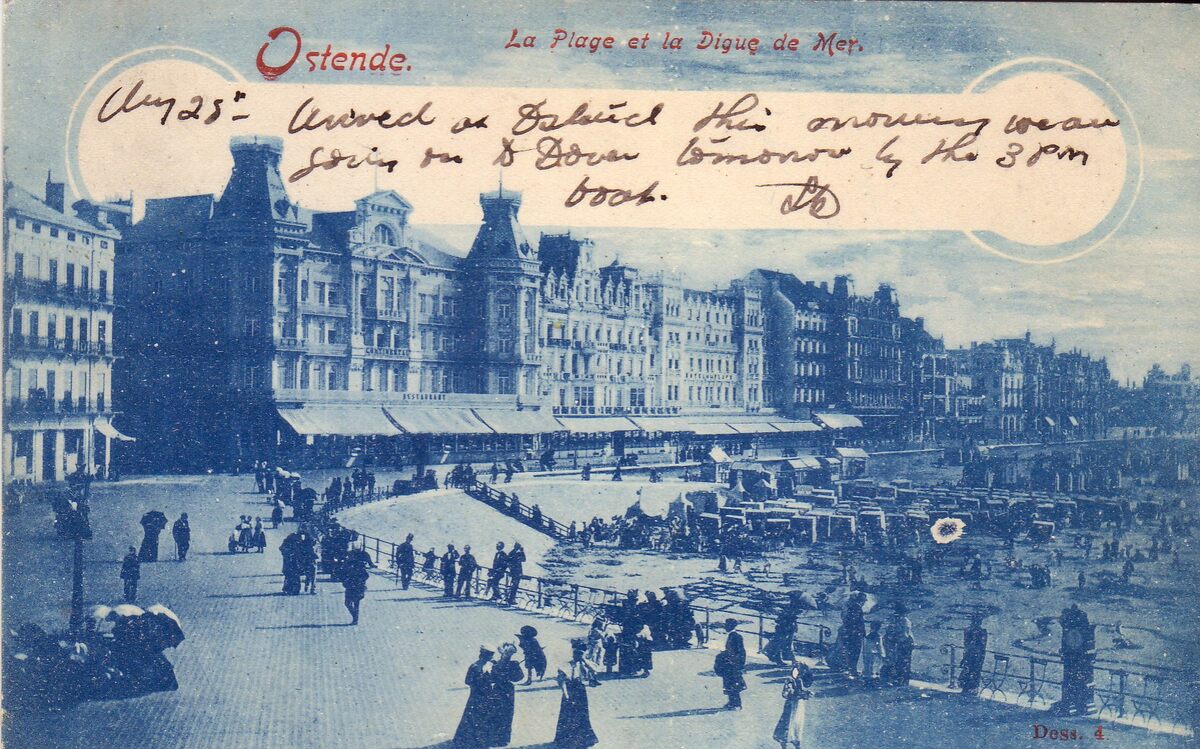 Ostende.
La Plage et la Digue de Mer.
Aug 25th Arrived at Ostend this morning we are
going on to Dover tomorrow by the 3 pm
boat.
CONTINENTAL
RESTAURANT
Dess. 4.